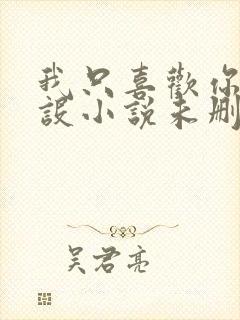 我只喜歡你
設小說未刪
吴君亮